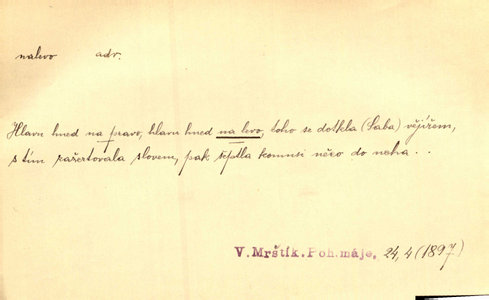 nalevo adv.
Hlavu hned na pravo, hlavu hned na levo, toho se dotkla (Saba) vějířem,
s tím zažertovala slovem, pak šeptla komusi něco do ucha . .
V. Mrštík. Poh. máje, 24, 4 (1897)